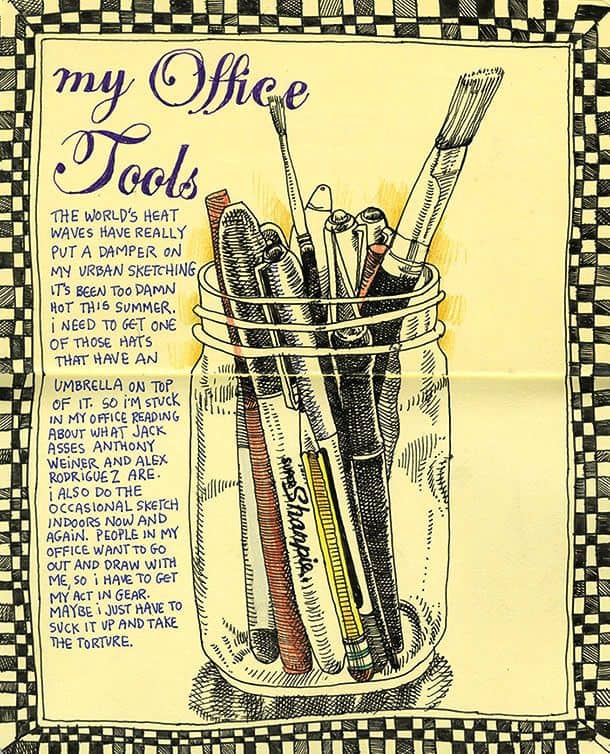 my Office
Tools
THE WORLD'S HEAT
WAVES HAVE REALLY
PUT A DAMPER ON
MY URBAN SKETCHING
IT'S BEEN TOO DAMN
HOT THIS SUMMER.
i NEED TO GET ONE
OF THOSE HATS
THAT HAVE AN
UMBRELLA ON TOP
OF IT. SO i'M STUCK
IN MY OFFICE READING
ABOUT WHAT JACK
ASSES ANTHONY
WEINER AND ALEX
RODRIGUEZ ARE.
i ALSO DO THE
OCCASIONAL SKETCH
INDOORS NOW AND
AGAIN. PEOPLE IN MY
OFFICE WANT TO GO
OUT AND DRAW WITH
ME, SO i HAVE TO GET
MY ACT IN GEAR.
MAYBE i JUST HAVE TO
SUCK IT UP AND TAKE
THE TORTURE.
SUPER Sharpie